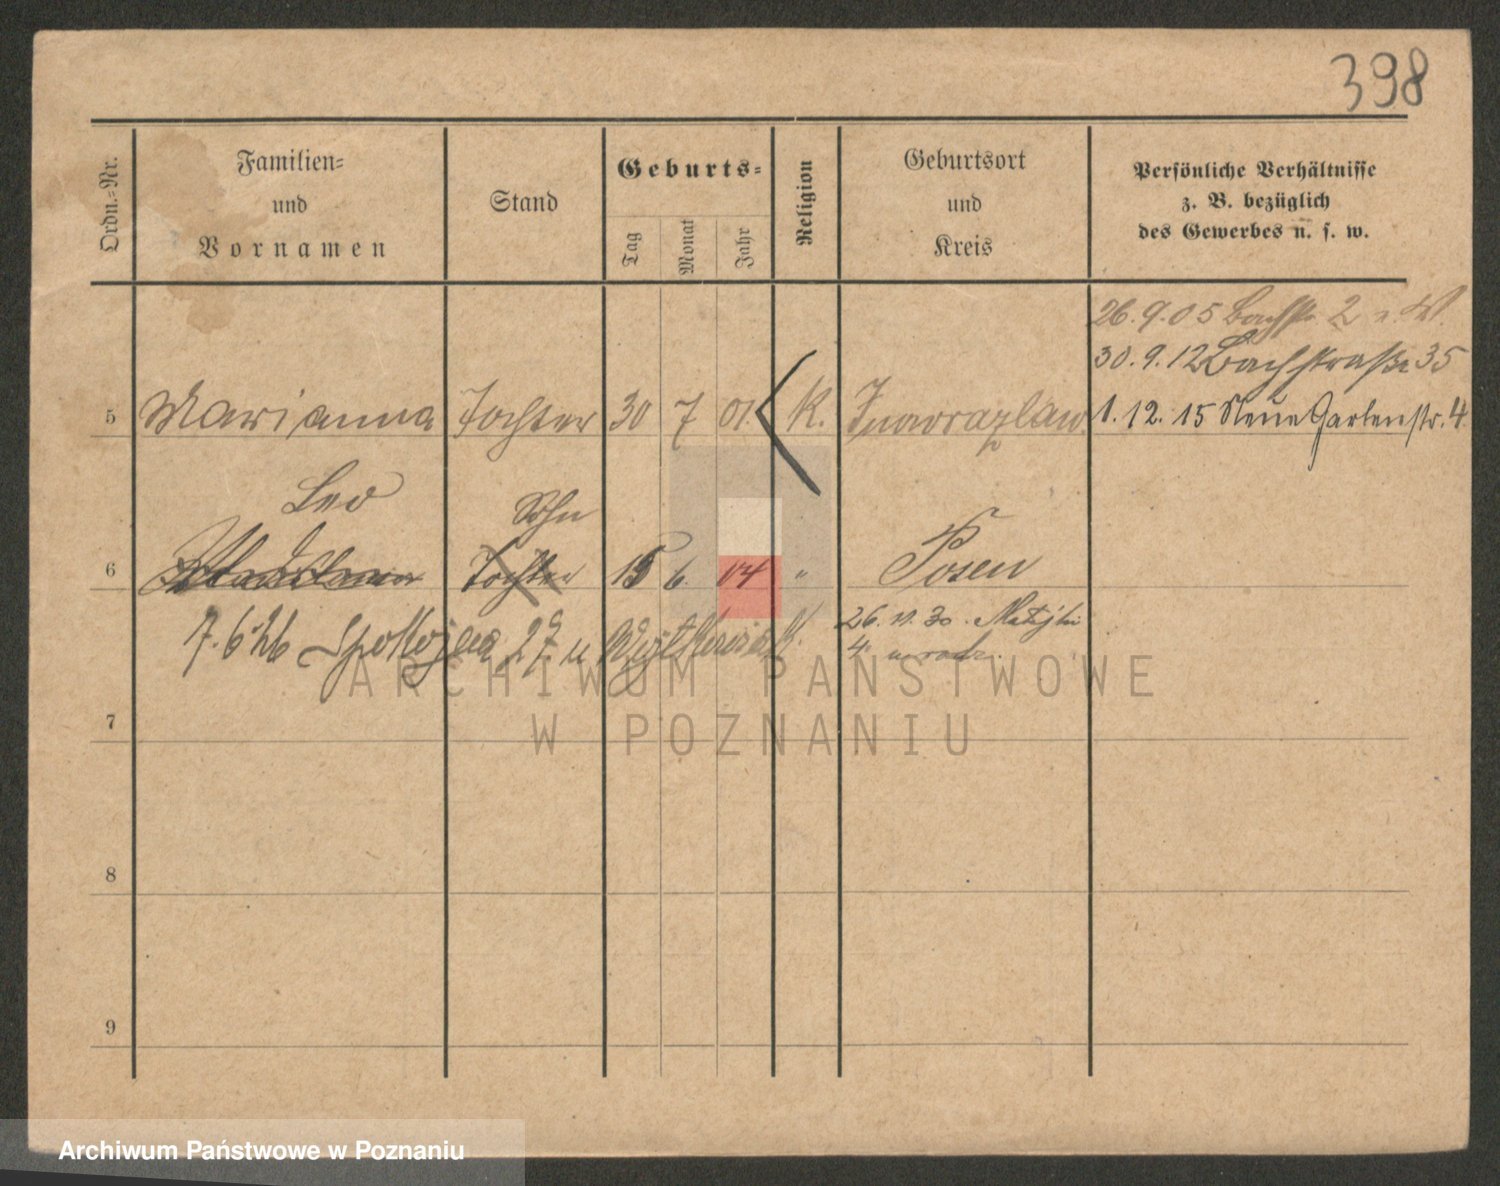 398
Ordn.-Nr.
Familien-
und
Vornamen
Stand
Geburts-
Tag
Monat
Jahr
Religion
Geburtsort
und
Kreis
Persönliche Verhältnisse
z. B. bezüglich
des Gewerbes u. s. w.
26. 9. 05 Bachstr. 2
30. 9. 12 Bachstraße 35
5 Marianna Tochter 30 7 01. K. Inowrazlaw 1. 12. 15 Neue Gartenstr. 4
Leo Sohn
6 Tochter 15 6. 04 " Posen
7. 6. 26 Spokojna 27 u
26. 11. 30. Matejki
4
ARCHIWUM PAŃSTWOWE
W POZNANIU
7
8
9
Archiwum Państwowe w Poznaniu